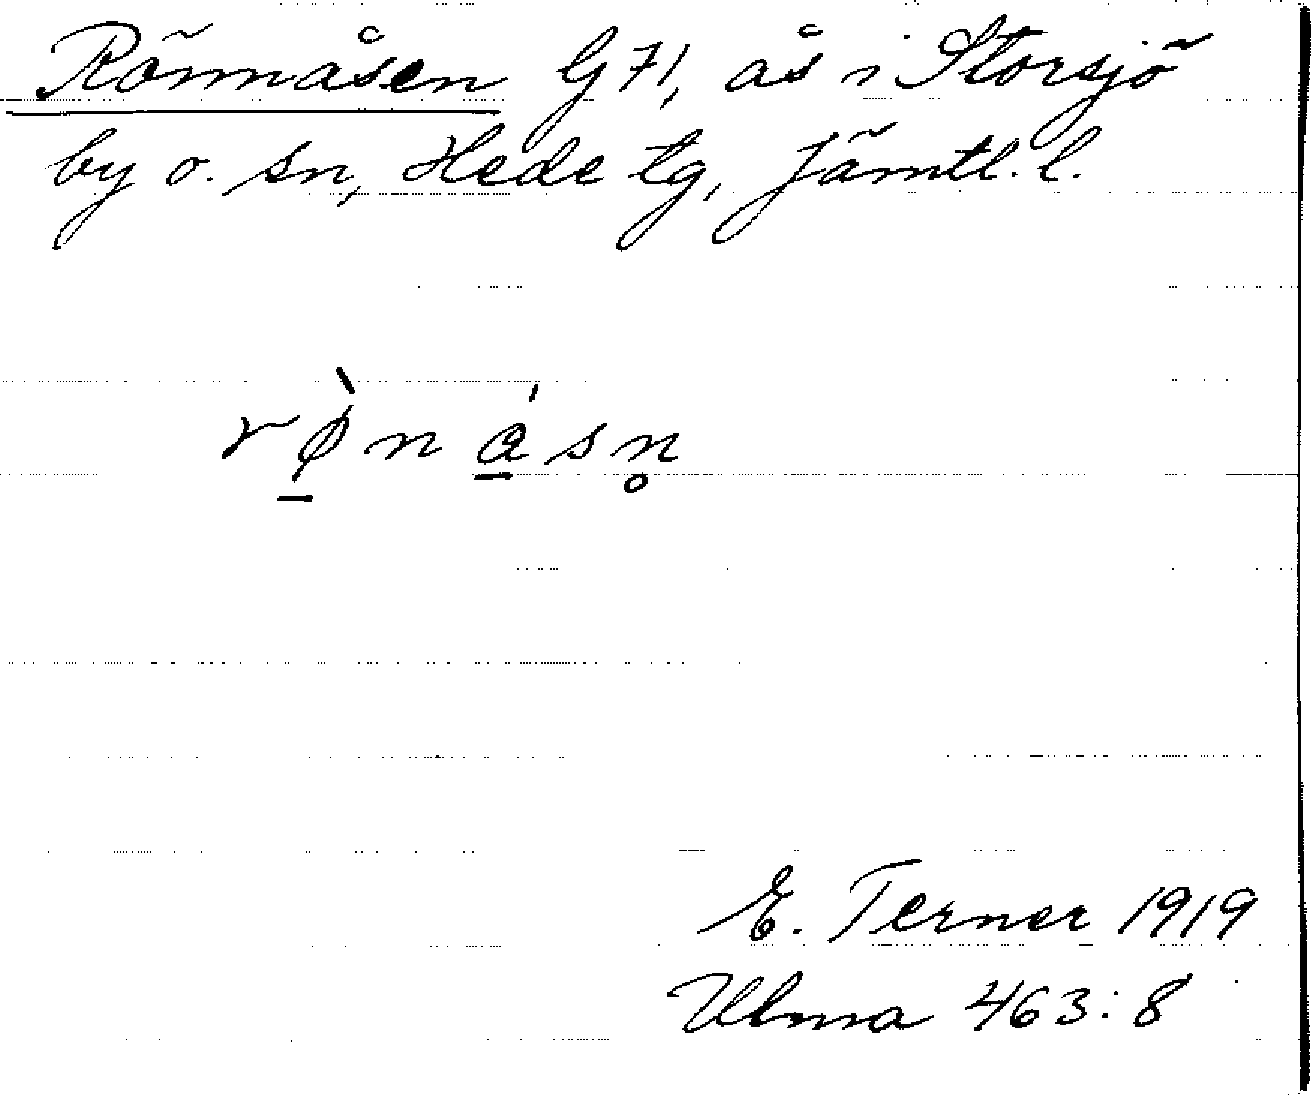 Rönnåsen G71, ås i Storsjö
by o. sn, Hede tg, Jämtl. l.
rø̱̀n á̱sn̥
E. Terner 1919
Ulma 463:8